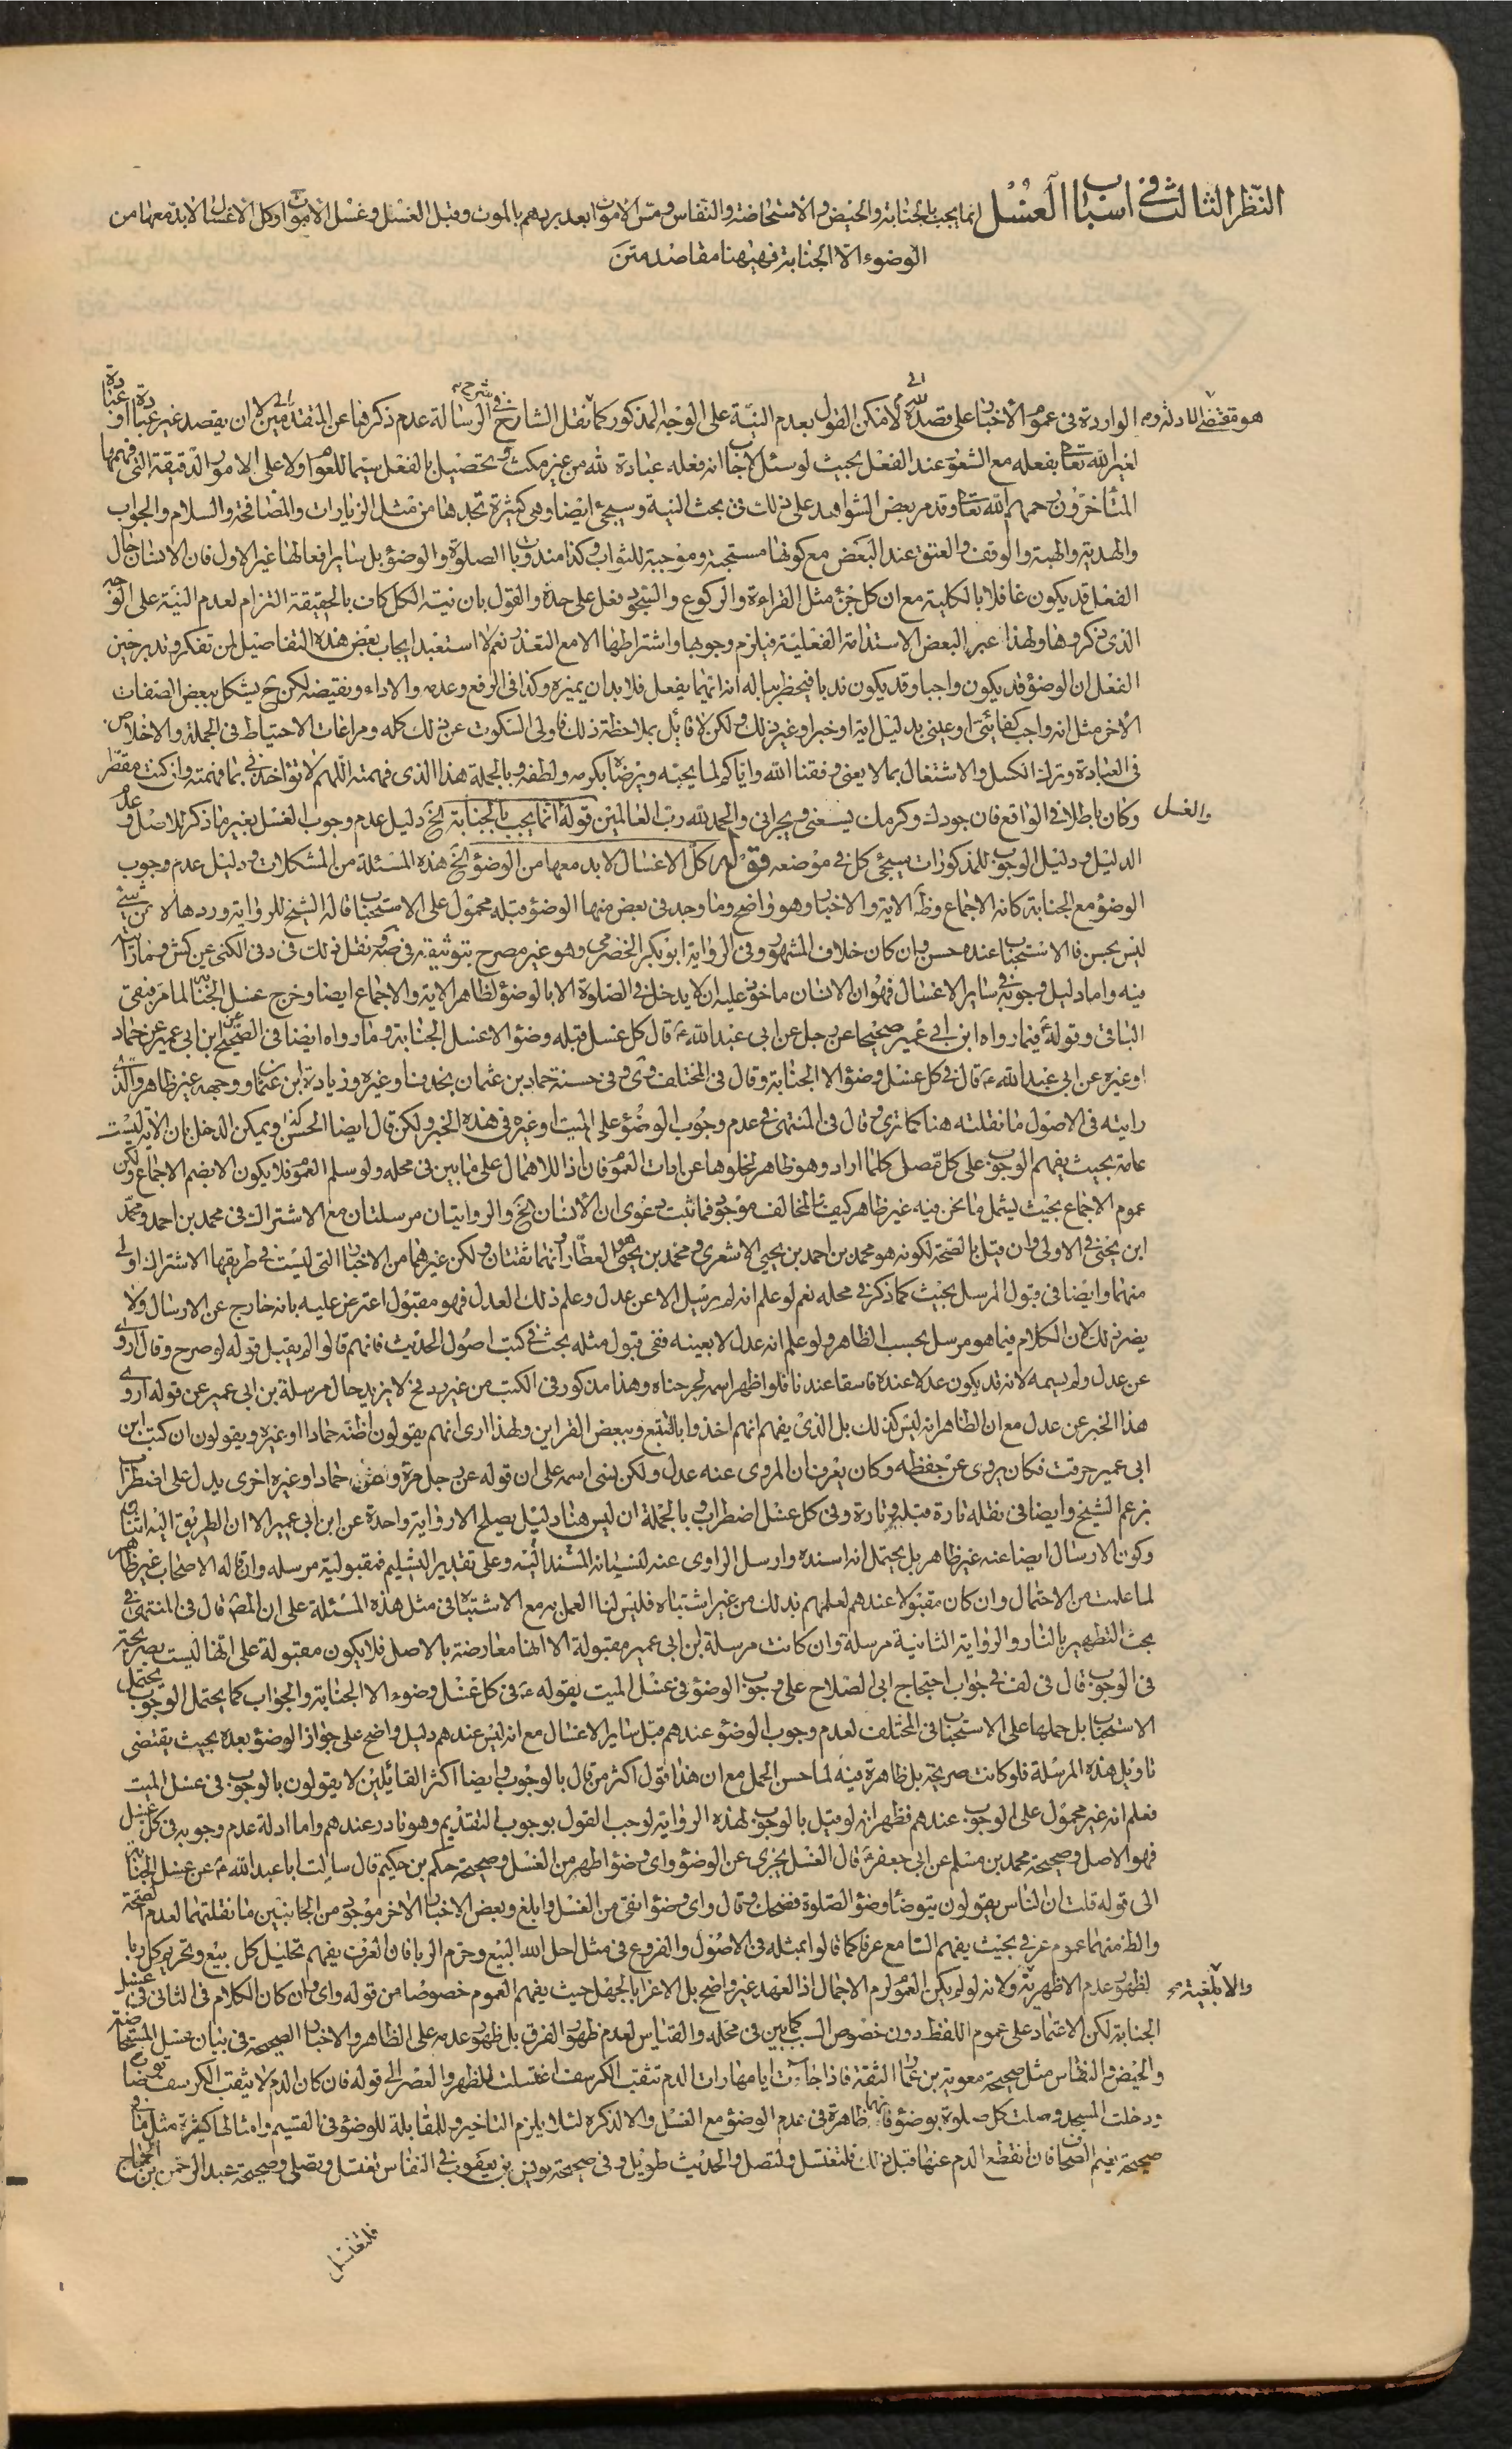 النظر الثالث في اسباب الغسل انما يجب بالجنابة والحيض والاستحاضة والنفاس ومس الاموات بعد بردهم بالموت وقبل الغسل وغسل الاموات وكل الاغسال لابد معها من
الوضوء الا الجنابة فهيهنا مقاصد متن
هو مقتضى الادلة الواردة في عموم الاخبار على قصد الله لامكن القول بعدم النية على الوجه المذكور كما نقل الشارح في شرح الرسالة عدم ذكرها عن المتقدمين لا ان يقصد غير عبادة او عبادة
لغير الله تعالى بفعله مع الشعور عند الفعل بحيث لو سئل لاجاب انه فعله عبادة لله من غير مكث وتحصيل بالفعل سيما للعوام ولا على الامور الدقيقة التي فهمها
المتأخرون رحمهم الله تعالى وقد مر بعض الشواهد على ذلك في بحث النية وسيجئ ايضا وهي كثيرة تجدها من مثل الزيارات والمصافحة والسلام والجواب
والهدية والهبة والوقف والعتق عند البعض مع كونها مستحبة وموجبة للثواب وكذا مندوبات الصلوة والوضوء بل ساير افعالها غير الاول فان الانسان حال
الفعل قد يكون غافلا بالكلية مع ان كل جزء مثل القراءة والركوع والسجود فعل على حدة والقول بان نية الكل كاف بالحقيقة التزام لعدم النية على الوجه
الذي ذكروها ولهذا عبر البعض الاستدامة الفعلية فيلزم وجوبها واشتراطها الا مع التعذر نعم لا استبعد ايجاب بعض هذه التفاصيل لمن تفكر وتدبر حين
الفعل ان الوضوء قد يكون واجبا وقد يكون ندبا فيخطر بباله انه ايهما يفعل فلابد ان يميزه وكذا في الرفع وعدمه والاداء ونقيضه لكن ح يشكل ببعض الصفات
الاخر مثل انه واجب كفائي او عيني بدليل اية او خبر او غير ذلك ولكن لا قائل بملاحظة ذلك فاولى السكوت عن ذلك كله ومراعات الاحتياط في الجملة والاخلاص
في العبادة وترك الكسل والاشتغال بما لا يعني وفقنا الله واياكم لما يحبه ويرضاه بكرمه ولطفه وبالجملة هذا الذي فهمته اللهم لا تؤاخذني بما فهمته وان كنت مقصرا
وكان باطلا في الواقع فان جودك وكرمك يسعني ويجرأني والحمد لله رب العالمين قوله انما يجب بالجنابة الخ دليل عدم وجوب الغسل بغير ما ذكر الاصل وعدم
الدليل ودليل الوجوب للمذكورات سيجئ كل في موضعه قوله كل الاغسال لابد معها من الوضوء الخ هذه المسئلة من المشكلات ودليل عدم وجوب
الوضوء مع الجنابة كانه الاجماع وظ الاية والاخبار وهو واضح وما وجد في بعض منها الوضوء قبله محمول على الاستحباب قاله الشيخ للرواية وردها لا من شئ
ليس بحسن فالاستحباب عنده حسن وان كان خلاف المشهور وفي الرواية ابو بكر الحضرمي وهو غير مصرح بتوثيقه في صه ونقل ذلك في د في الكنى عن كش وما رأيت
فيه واما دليل وجوبه في ساير الاغسال فهو ان الانسان ماخوذ عليه ان لا يدخل في الصلوة الا بالوضوء لظاهر الاية والاجماع ايضا وخرج غسل الجنابة لما مر فبقي
الباقي وقوله فيما رواه ابن ابي عمير صحيحا عن رجل عن ابي عبد الله ع قال كل غسل قبله وضوء الا غسل الجنابة وما رواه ايضا في الصحيح عن ابن ابي عمير عن حماد
او غيره عن ابي عبد الله ع قال في كل غسل وضوء الا الجنابة وقال في المختلف وى وفي حسنة حماد بن عثمان بحذف او غيره وزيادة ابن عثمان ووجهه غير ظاهر والذي
رايته في الاصول ما نقلته هنا كما ترى وقال في المنتهى في عدم وجوب الوضوء على الميت او غيره في هذه الخبر ولكن قال ايضا الحسن كذا ويمكن الدخل بان الاية ليست
عامة بحيث يفهم الوجوب على كل مصل كلما اراد وهو ظاهر لخلوها عن ادات العموم فان اذا للاهمال على ما بين في محله ولو سلم العموم فلا يكون الا بضم الاجماع ولكن
عموم الاجماع بحيث يشمل ما نحن فيه غير ظاهر كيف المخالف موجود فما ثبت دعوى ان الانسان الخ والروايتان مرسلتان مع الاشتراك في محمد بن احمد ومحمد
ابن يحيى في الاولى وان قيل بالصحة لكونه هو محمد بن احمد بن يحيى الاشعري ومحمد بن يحيى هو العطار وانهما ثقتان ولكن غيرهما من الاخبار التي ليست في طريقها الاشتراك اولى
منهما وايضا في قبول المرسل بحيث كما ذكر في محله نعم لو علم انه لم يرسل الا عن عدل وعلم ذلك العدل فهو مقبول اعترض عليه بانه خارج عن الارسال ولا
يضر ذلك لان الكلام فيما هو مرسل بحسب الظاهر ولو علم انه عدل لا بعينه ففي قبول مثله بحث في كتب اصول الحديث فانهم قالوا لم يقبل قوله لو صرح وقال اروي
عن عدل ولم يسمه لانه قد يكون عدلا عنده فاسقا عندنا فلو اظهر اسمه لجرحناه وهذا مذكور في الكتب من غير رد فح لا يزيد حال مرسلة بن ابي عمير عن قوله اروي
هذا الخبر عن عدل مع ان الظاهر انه ليس كذلك بل الذي يفهم انهم اخذوا بالتتبع وببعض القراين ولهذا ارى انهم يقولون اظنه حمادا او غيره ويقولون ان كتب ابن
ابي عمير حرقت فكان يروي عن حفظه وكان يعرف ان المروي عنه عدل ولكن نسى اسمه على ان قوله عن رجل مرة وعن حماد او غيره اخرى يدل على اضطراب
بزعم الشيخ وايضا في نقله تارة قبله وتارة وفي كل غسل اضطراب وبالجملة ان ليس هنا دليل يصلح الا رواية واحدة عن ابن ابي عمير الا ان الطريق اليه اثنان
وكون الارسال ايضا عنه غير ظاهر بل يحتمل انه اسنده وارسل الراوي عنه لنسيانه المسند اليه وعلى تقدير التسليم فمقبولية مرسله وان قاله الاصحاب غير ظاهر
لما علمت من الاحتمال وان كان مقبولا عندهم لعلمهم بذلك من غير اشتباه فليس لنا العمل به مع الاشتباه في مثل هذه المسئلة على ان المص قال في المنتهى في
بحث التطهير بالنار والرواية الثانية مرسلة وان كانت مرسلة ابن ابي عمير مقبولة الا انها معارضة بالاصل فلا يكون مقبولة على انها ليست بصريحة
في الوجوب قال في لف في جواب احتجاج ابي الصلاح على وجوب الوضوء في غسل الميت بقوله ع في كل غسل وضوء الا الجنابة والجواب كما يحتمل الوجوب يحتمل
الاستحباب بل حملها على الاستحباب في المختلف لعدم وجوب الوضوء عندهم قبل ساير الاغسال مع انه ليس عندهم دليل واضح على جواز الوضوء بعده بحيث يقتضي
تاويل هذه المرسلة فلو كانت صريحة بل ظاهرة فيه لما حسن الحمل مع ان هذا قول اكثر من قال بالوجوب وايضا اكثر القائلين لا يقولون بالوجوب في غسل الميت
فعلم انه غير محمول على الوجوب عندهم فظهر انه لو قيل بالوجوب لهذه الرواية لوجب القول بوجوب التقديم وهو نادر عندهم واما ادلة عدم وجوبه في كل غسل
فهو الاصل وصحيحة محمد بن مسلم عن ابي جعفر ع قال الغسل يجزي عن الوضوء واي وضوء اطهر من الغسل وصحيحة حكم بن حكيم قال سالت ابا عبد الله ع عن غسل الجنابة
الى قوله قلت ان الناس يقولون يتوضأ وضوء الصلوة فضحك وقال واي وضوء انقى من الغسل وابلغ وبعض الاخبار الاخر موجود من الجانبين ما نقلتهما لعدم الصحة
والظ منهما عموم عرفي بحيث يفهم السامع عرفا كما قالوا بمثله في الاصول والفروع في مثل احل الله البيع وحرم الربا فان العرف يفهم تحليل كل بيع وتحريم كل ربا
والابلغية لظهور عدم الاظهرية ولانه لو لم يكن العموم لزم الاجمال اذ العهد غير واضح بل الاغرا بالجهل حيث يفهم العموم خصوصا من قوله واي وان كان الكلام في الثاني في غسل
الجنابة لكن الاعتماد على عموم اللفظ دون خصوص السبب كما بين في محله والقياس لعدم ظهور الفرق بل ظهور عدمه على الظاهر والاخبار الصحيحة في بيان غسل المستحاضة
والحيض والنفاس مثل صحيحة معوية بن عمار الثقة فاذا جازت ايامها ورات الدم تثقب الكرسف اغتسلت للظهر والعصر الى قوله فان كان الدم لا يثقب الكرسف توضأت
ودخلت المسجد وصلت كل صلوة بوضوء فانها ظاهرة في عدم الوضوء مع الغسل والا لذكره لئلا يلزم التاخير وللمقابلة للوضوء في القسيم وامثالها كثيرة مثل ما في
صحيحة نعيم الصحاف فان انقطع الدم عنها قبل ذلك فلتغتسل ولتصل والحديث طويل وفي صحيحة يونس بن يعقوب في النفاس تغتسل وتصلي وصحيحة عبد الرحمن بن الحجاج
والغسل
فلتغتسل